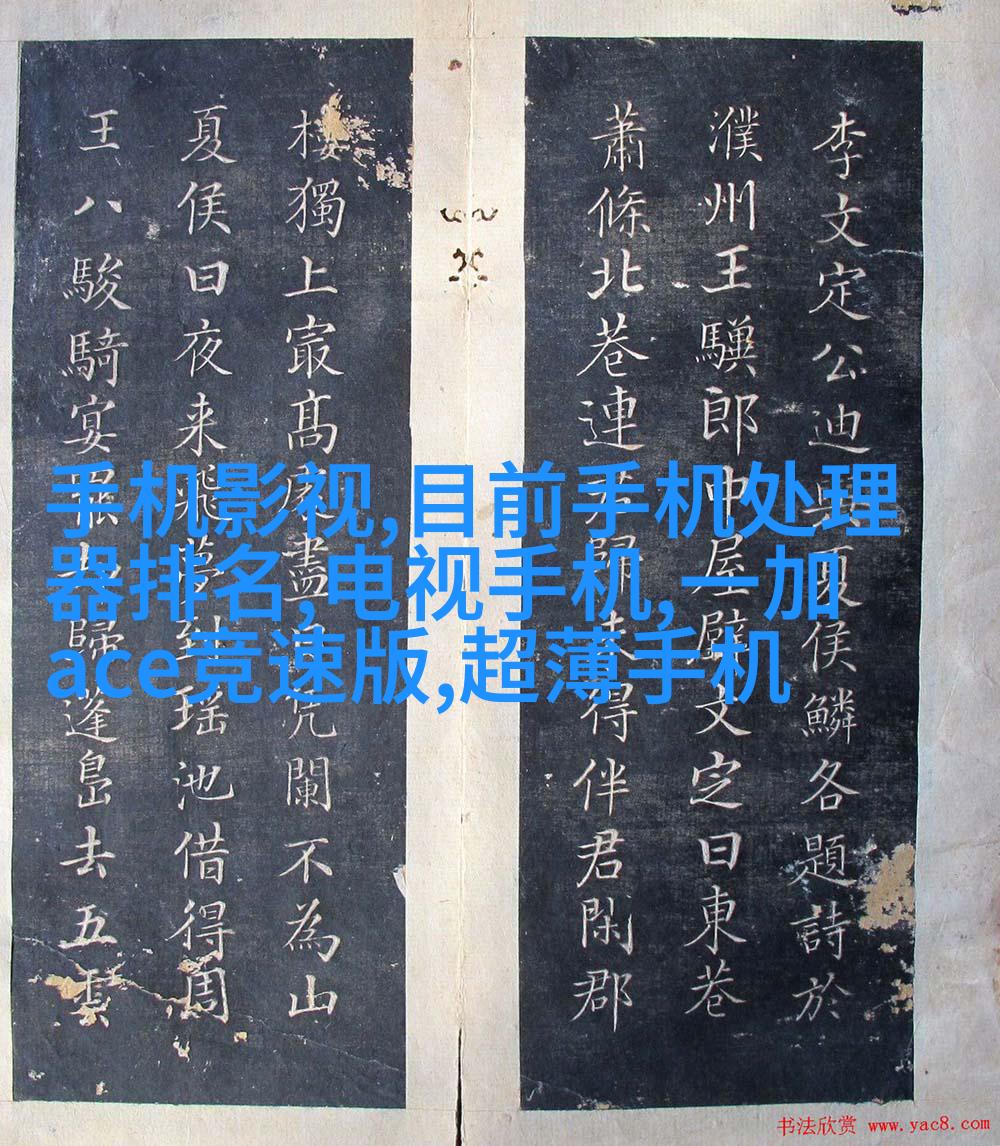 李文定公迪與夏侯鱗各題詩於
濮州王郎中屋壁文定曰東巷
蕭條北巷連歸得伴君閑郡
樓獨上㝡髙盡凭闌不為山
夏侯曰夜来飛夢到瑶池借得周
王八駿騎宴罷歸蓬島去五雲
手机影视,目前手机处理
器排名,电视手机,一加
ace竞速版,超薄手机
书法欣赏 www.yac8.com